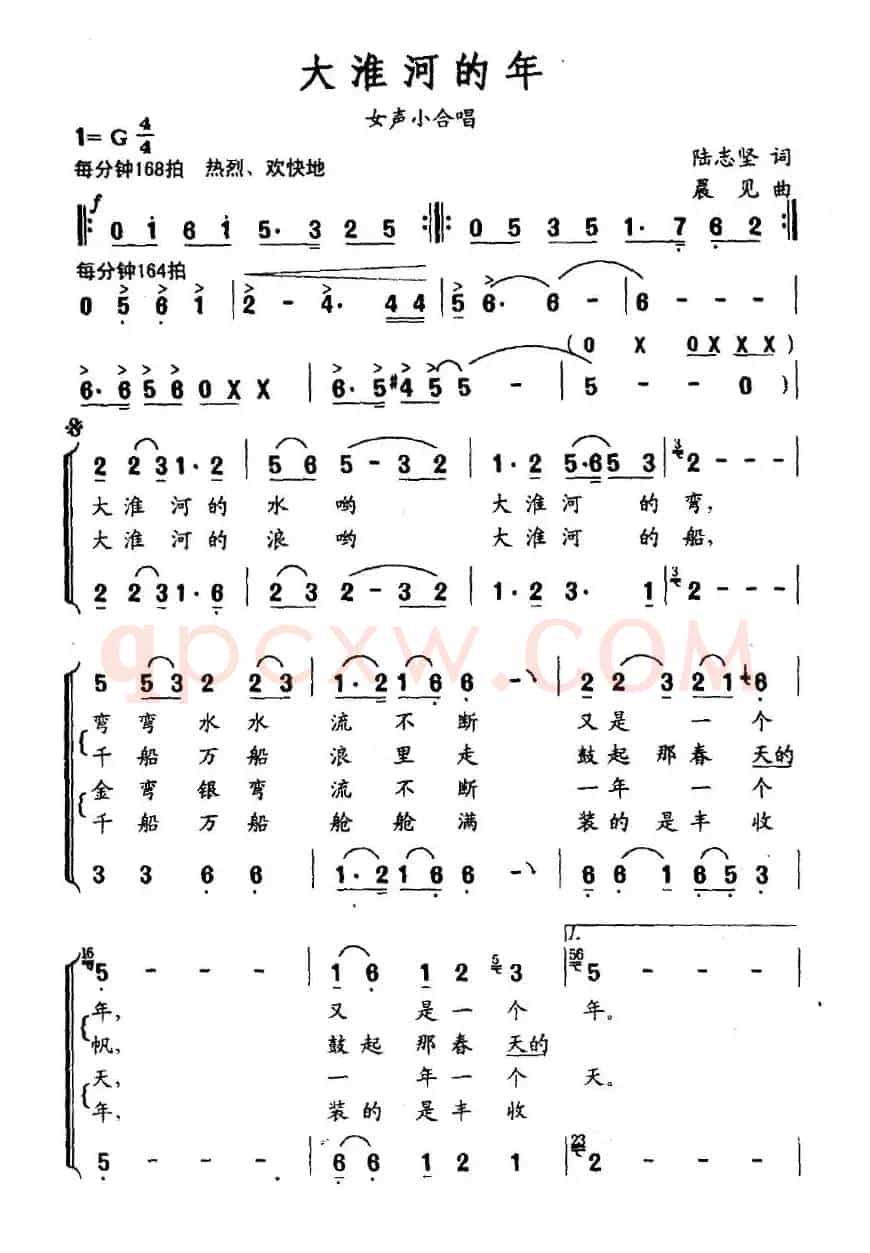 大淮河的年
女声小合唱
1= G 4/4
每分钟168拍 热烈、欢快地
陆志坚 词
晨 见 曲
f
0 1 6 1 5· 3 2 5 0 5 3 5 1· 7 6 2
每分钟164拍
0 5 6 1 | 2 - 4· 4 4 | 5 6· 6 - | 6 - - - |
( 0 X 0 X X X )
6· 6 5 6 0 X X | 6· 5 #4 5 5 - | 5 - - 0 )
2 2 3 1· 2 | 5 6 5 - 3 2 | 1· 2 5· 6 5 3 | 3 2 - - - |
大淮河的水哟 大淮河的弯,
大淮河的浪哟 大淮河的船,
2 2 3 1· 6 | 2 3 2 - 3 2 | 1· 2 3· 1 | 3 2 - - - |
qpcxw.COM
5 5 3 2 2 3 | 1· 2 1 6 6 - | 2 2 3 2 1 6 |
弯弯水水流不断 又是一个
千船万船浪里走 鼓起那春天的
金弯银弯流不断 一年一个
千船万船舱舱满 装的是丰收
3 3 6 6 | 1· 2 1 6 6 - | 6 6 1 6 5 3 |
1.
16 5 - - - | 1 6 1 2 5 3 | 56 5 - - - |
年, 又是一个年。
帆, 鼓起那春天的
天, 一年一个天。
年, 装的是丰收
5 - - - | 6 6 1 2 1 | 23 2 - - - |